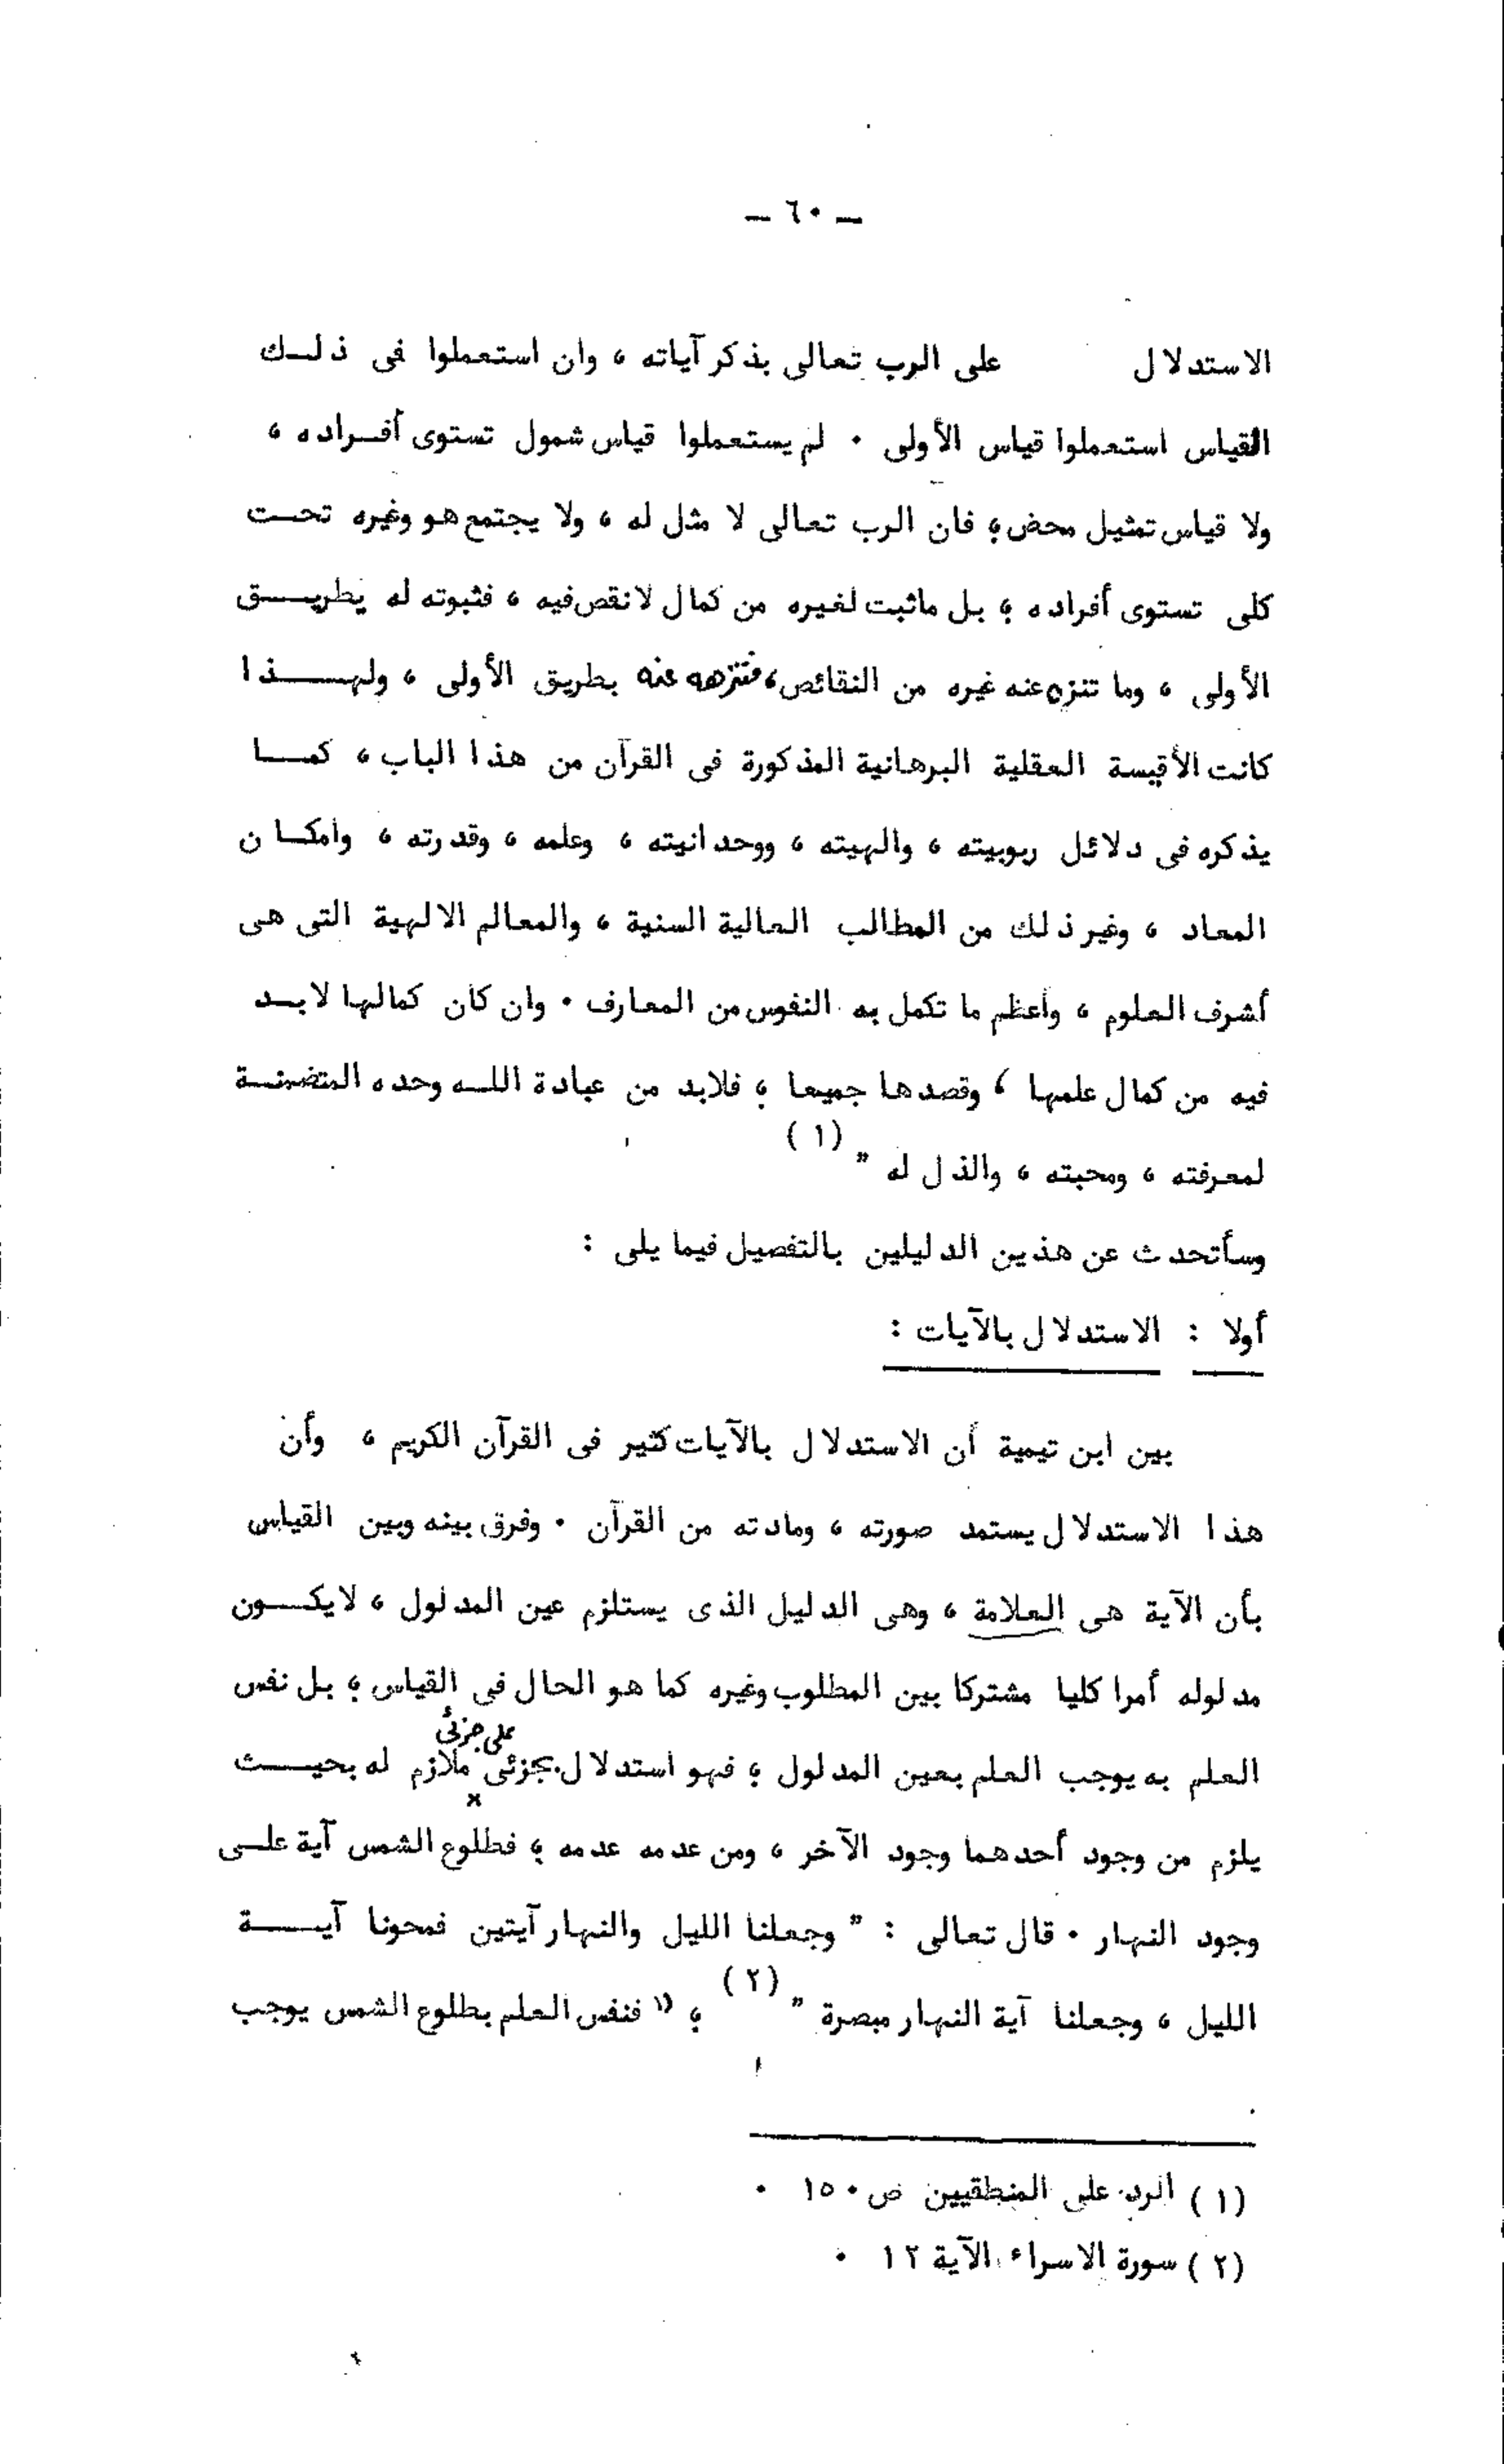 — ٦٠ —
الاستدلال على الرب تعالى بذكر آياته ، وان استعملوا فى ذلك
القياس استعملوا قياس الأولى . لم يستعملوا قياس شمول تستوى أفراده ،
ولا قياس تمثيل محض ؛ فان الرب تعالى لا مثل له ، ولا يجتمع هو وغيره تحت
كلى تستوى أفراده ؛ بل ماثبت لغيره من كمال لانقص فيه ، فثبوته له بطريق
الأولى ، وما تنزه عنه غيره من النقائص، فتنزهه عنه بطريق الأولى ، ولهذا
كانت الأقيسة العقلية البرهانية المذكورة فى القرآن من هذا الباب ، كما
يذكره فى دلائل ربوبيته ، والهيته ، ووحدانيته ، وعلمه ، وقدرته ، وامكان
المعاد ، وغير ذلك من المطالب العالية السنية ، والمعالم الالهية التى هى
أشرف العلوم ، وأعظم ما تكمل به النفوس من المعارف . وان كان كمالها لابد
فيه من كمال علمها ، وقصدها جميعا ؛ فلابد من عبادة الله وحده المتضمنة
لمعرفته ، ومحبته ، والذل له " (١)
وسأتحدث عن هذين الدليلين بالتفصيل فيما يلى :
أولا : الاستدلال بالآيات :
بين ابن تيمية أن الاستدلال بالآيات كثير فى القرآن الكريم ، وأن
هذا الاستدلال يستمد صورته ، ومادته من القرآن . وفرق بينه وبين القياس
بأن الآية هى العلامة ، وهى الدليل الذى يستلزم عين المدلول ، لايكون
مدلوله أمرا كليا مشتركا بين المطلوب وغيره كما هو الحال فى القياس ؛ بل نفس
العلم به يوجب العلم بعين المدلول ؛ فهو استدلال بجزئى على جزئى ملازم له بحيث
يلزم من وجود أحدهما وجود الآخر ، ومن عدمه عدمه ؛ فطلوع الشمس آية على
وجود النهار . قال تعالى : " وجعلنا الليل والنهار آيتين فمحونا آية
الليل ، وجعلنا آية النهار مبصرة " (٢) ؛ " فنفس العلم بطلوع الشمس يوجب
(١) الرد على المنطقيين ص ١٥٠ .
(٢) سورة الاسراء الآية ١٢ .